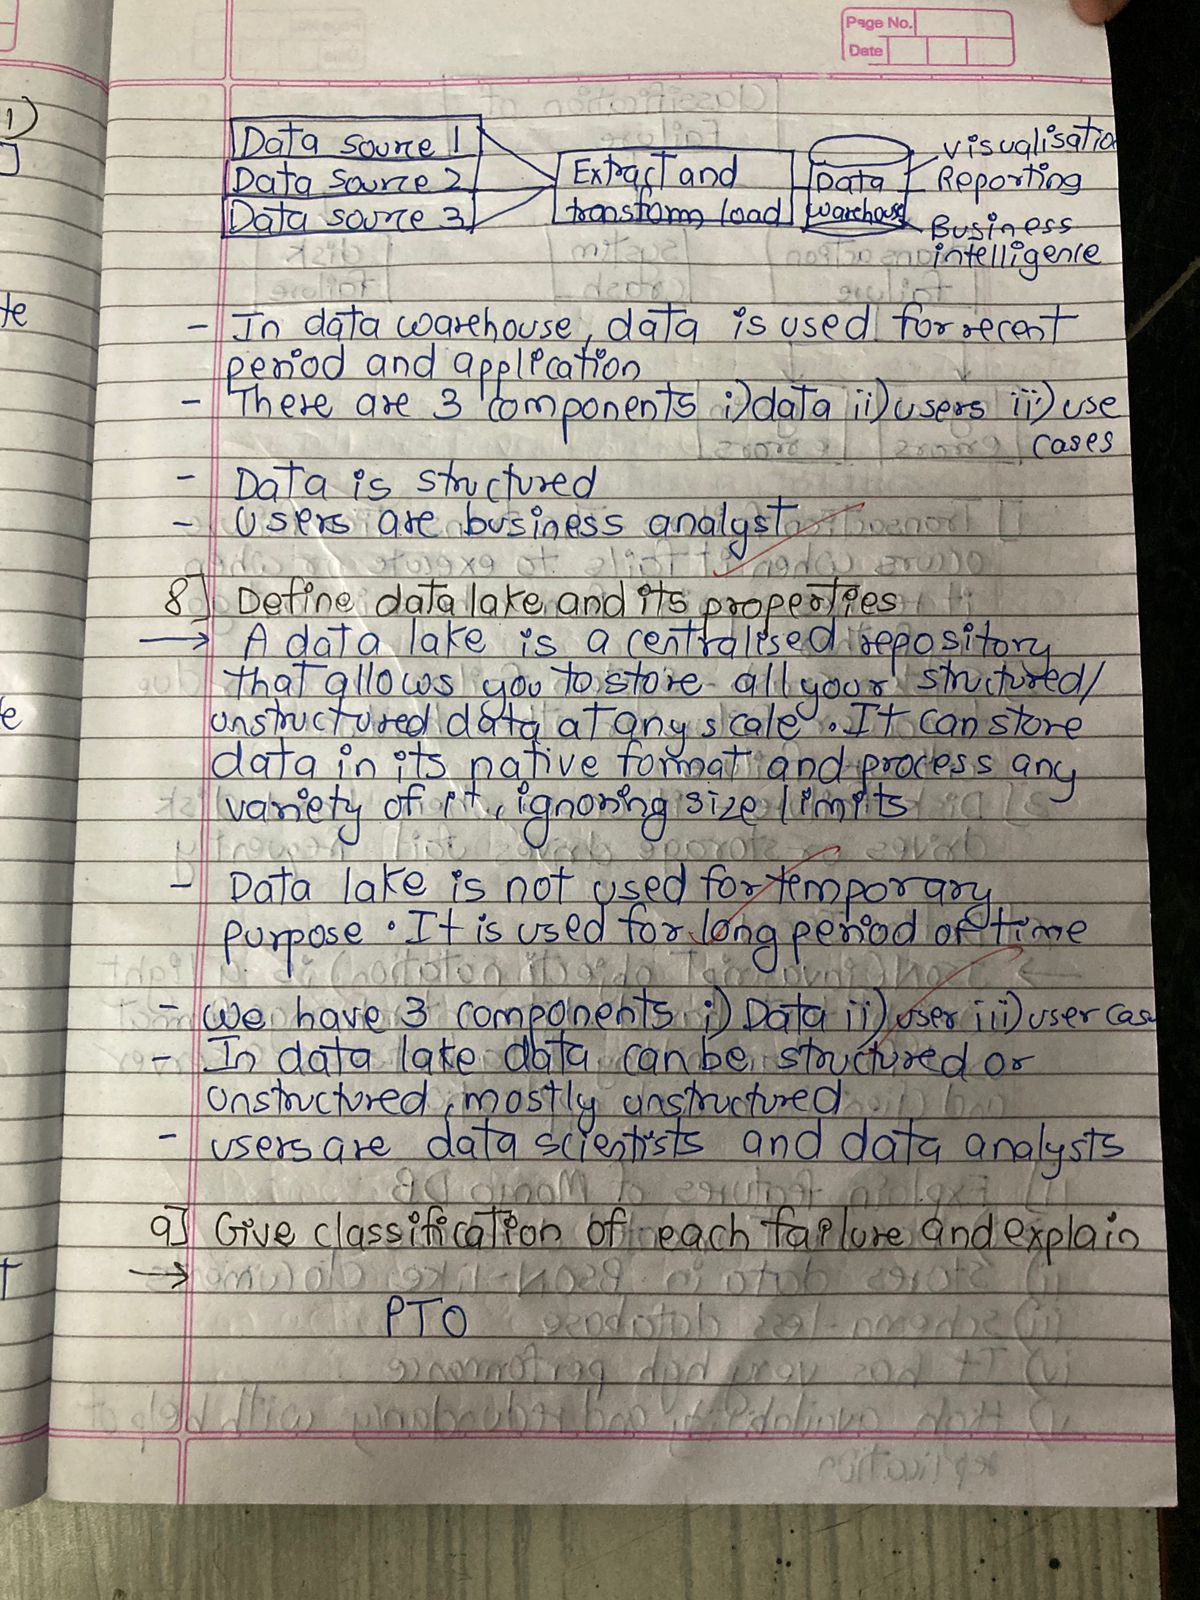 Page No.
Date
Data source 1
Data source 2
Data source 3
Extract and
transform, load
Data
warehouse
visualisatio
Reporting
Business
intelligence
- In data warehouse, data is used for recent
period and application
- There are 3 components i) data ii) users iii) use
cases
- Data is structured
- Users are business analyst
8] Define data lake and its properties
→ A data lake is a centralised repository
that allows you to store all your structured/
unstructured data at any scale. It can store
data in its native format and process any
variety of it, ignoring size limits
- Data lake is not used for temporary
purpose. It is used for long period of time
- We have 3 components i) Data ii) user iii) user cas
- In data lake data can be structured or
unstructured, mostly unstructured
- users are data scientists and data analysts
9] Give classification of each failure and explain
→
PTO